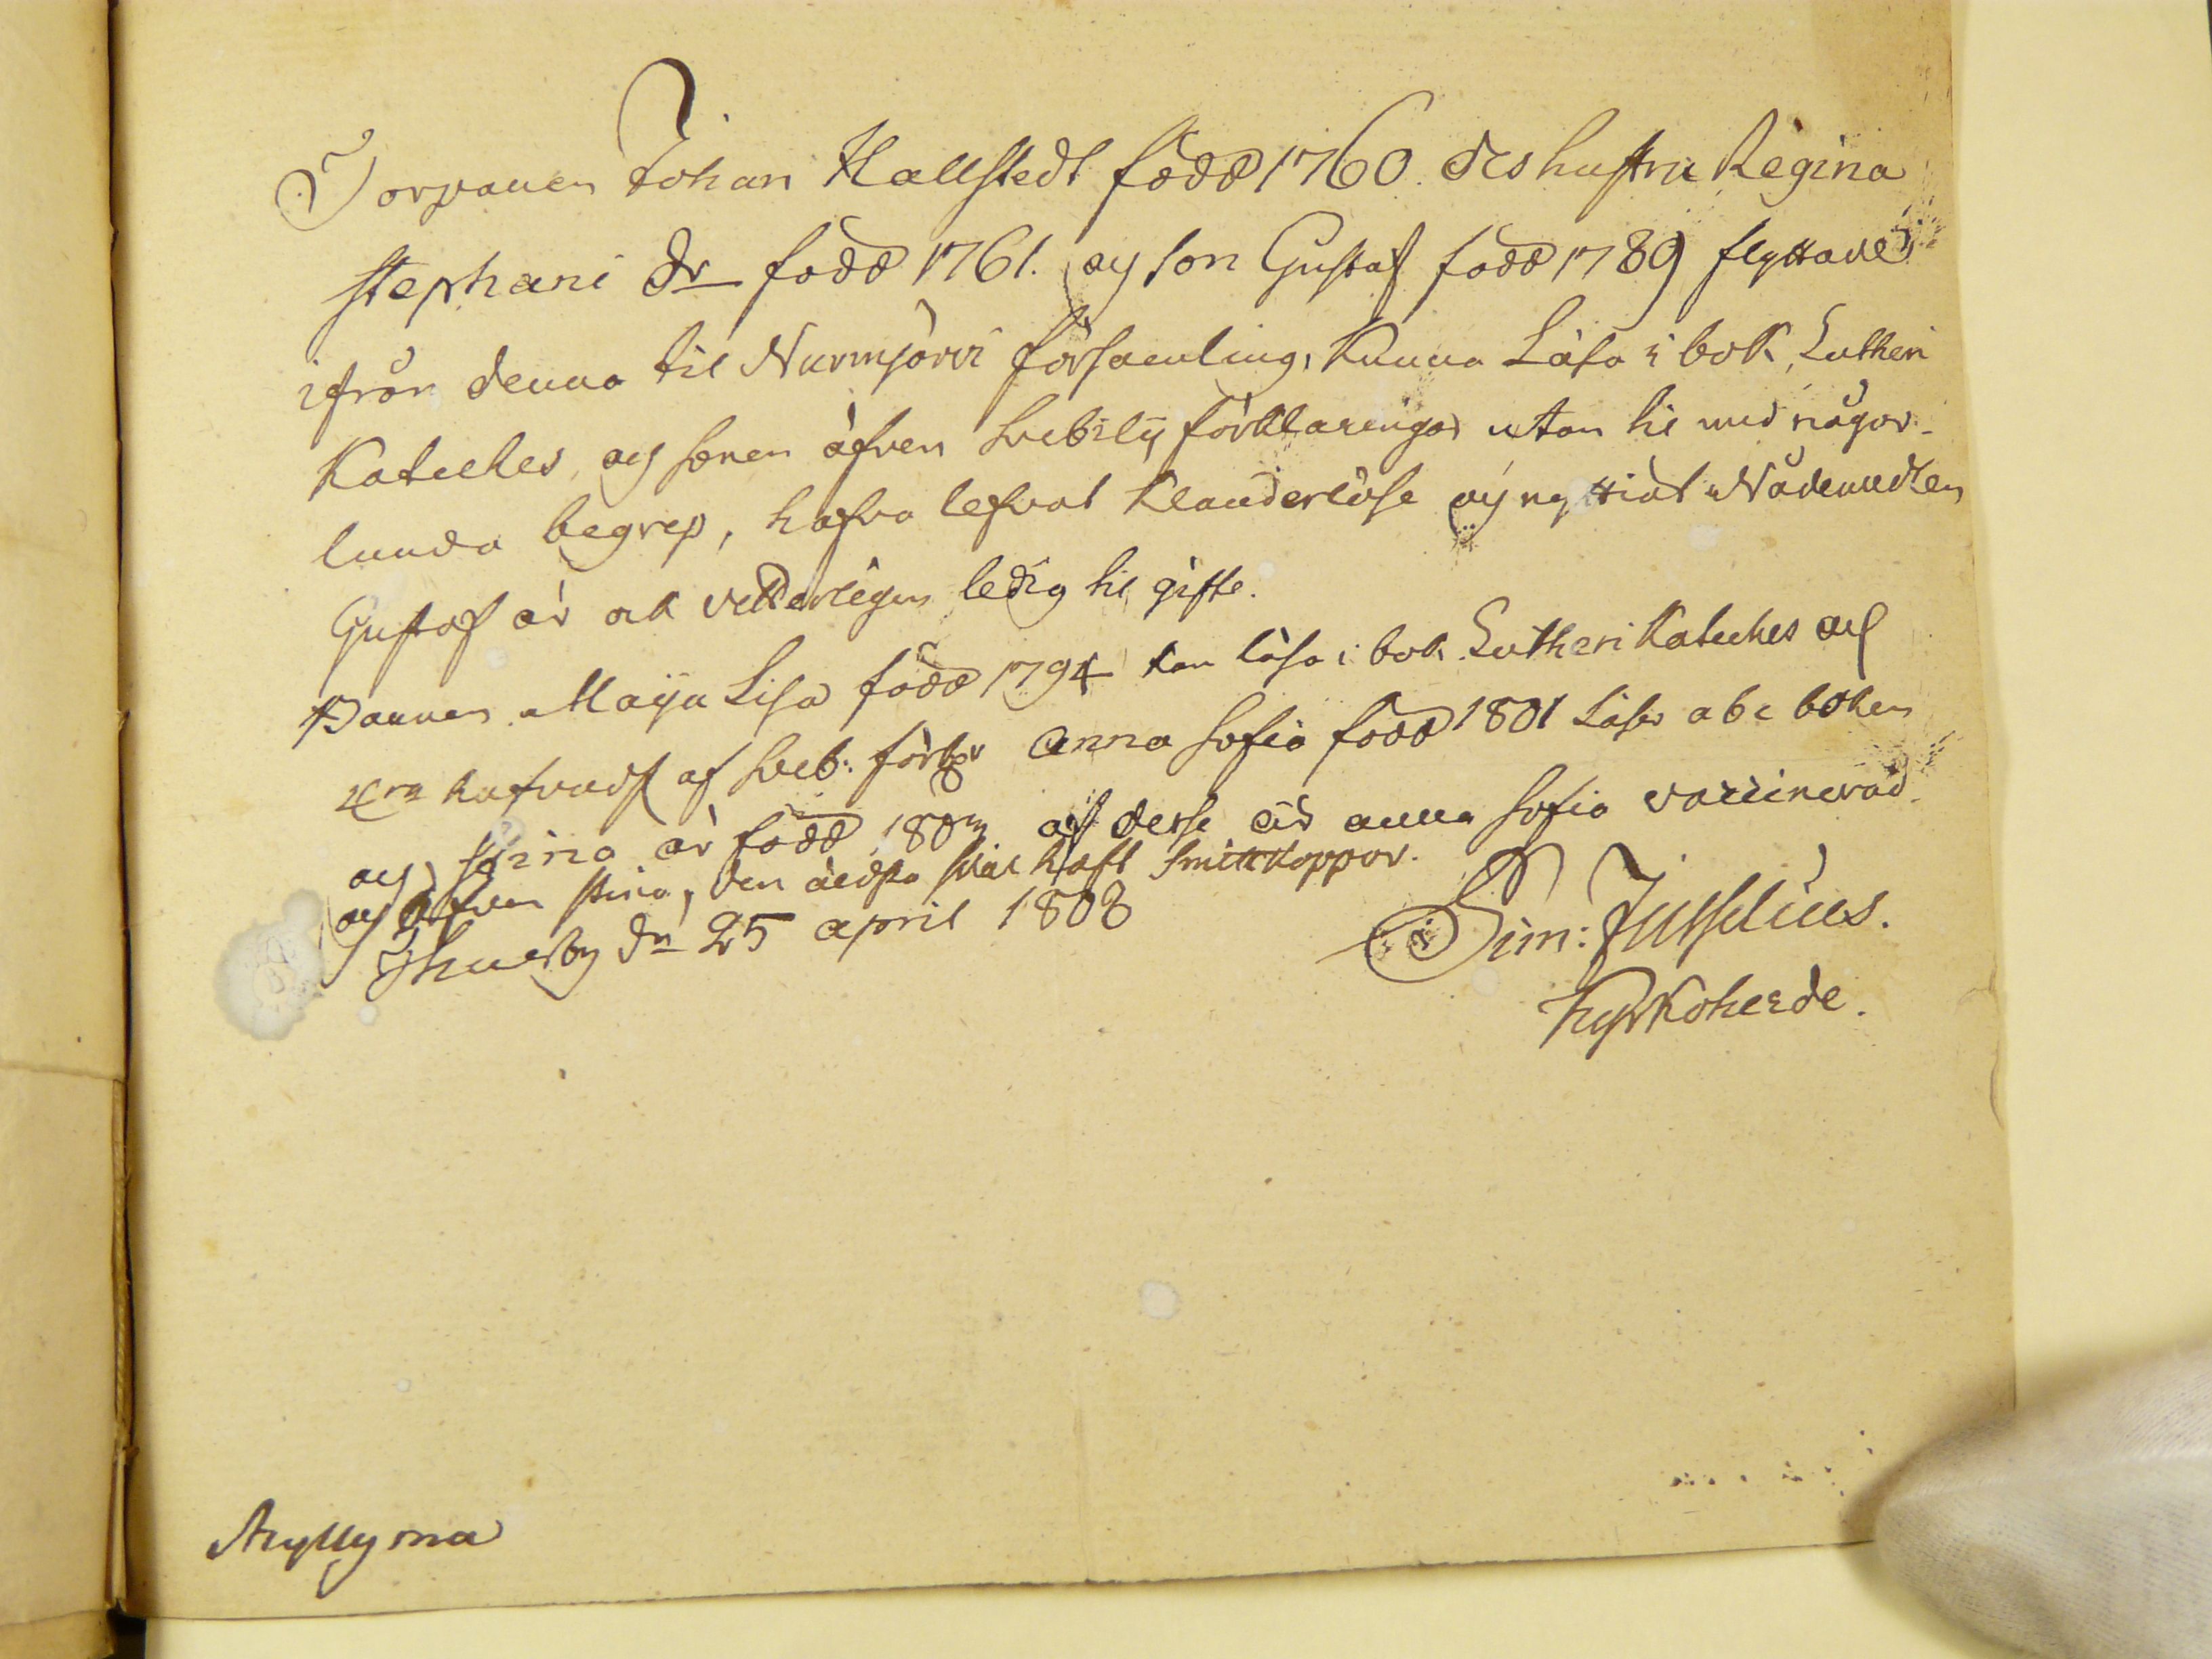 Torparen Johan Hallstedt född 1760. des hustru Regina
Stephani dr född 1761. og son Gustaf född 1789 flyttade
ifrån denna til Nurmjärvi församling, Kunna Läsa i bok, Lutheri
Kateches, og sonen äfven Svebilij förklaringar utan til med någor-
lunda begrep, hafva lefvat Klanderlöse og nyttiat Nådemedlen
Gustaf är ock vetterligen ledig til gifte.
Barnen Maija Lisa född 1794 kan läsa i bok Lutheri Kateches og
4ra hufvudst af Sveb: förkl: Anna Sofia född 1801 Läser abc boken
og Stina är född af desse är anna Sofia vaccinerad
og äfven Stina, den äldsta har haft Smittkoppor.
Thusby dn 25 april 1808
Sim: Jusselius.
Kyrkoherde.
Myllymä